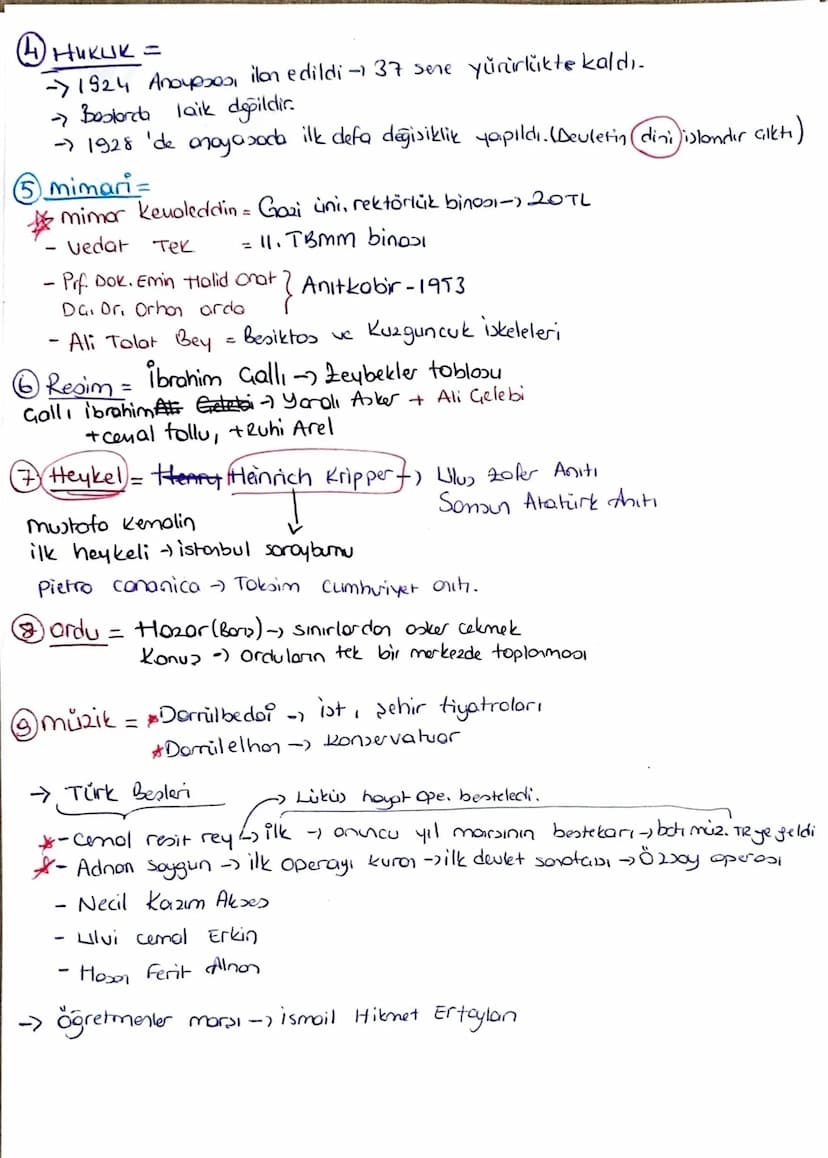 ④ HUKUK =
→ 1924 Anayasası ilan edildi → 37 sene yürürlükte kaldı.
→ Başlarda laik değildir.
→ 1928 'de anayasada ilk defa değişiklik yapıldı. (Devletin dini islamdır çıktı)
⑤ mimari =
mimar Kemaleddin = Gazi üni. rektörlük binası → 20TL
- Vedat TEK = II. TBMM binası
- Prf. Dok. Emin Halid Onat } Anıtkabir - 1953
Dç. Dr. Orhan arda
- Ali Talat Bey = Beşiktaş ve Kuzguncuk iskeleleri
⑥ Resim = İbrahim Çallı → Zeybekler tablosu
Çallı ibrahim Ali Çelebi → Yaralı Asker + Ali Çelebi
+ cemal tollu, + Ruhi Arel
⑦ Heykel = Henry Heinrich Kripper → Ulus zafer Anıtı
Samsun Atatürk Anıtı
mustafa Kemalin
ilk heykeli → istanbul sarayburnu
Pietro canonica → Taksim cumhuriyet anıtı.
⑧ ordu = Hazar (Barış) → sınırlardan asker çekmek
Konuş → orduların tek bir merkezde toplanması
⑨ müzik = Darrülbedai → ist, şehir tiyatroları
Darrülelhan → konservatuar
→ Türk Beşleri
→ Lüküs hayat ope. besteledi.
- Cemal reşit rey → ilk → onuncu yıl marşının bestekarı → batı müz. TR ye geldi
- Adnan Saygun → ilk operayı kuran → ilk devlet sanatçısı → Özsoy operası
- Necil Kazım Akses
- Ulvi cemal Erkin
- Hasan Ferit Alnan
→ Öğretmenler marşı → ismail Hikmet Ertaylan